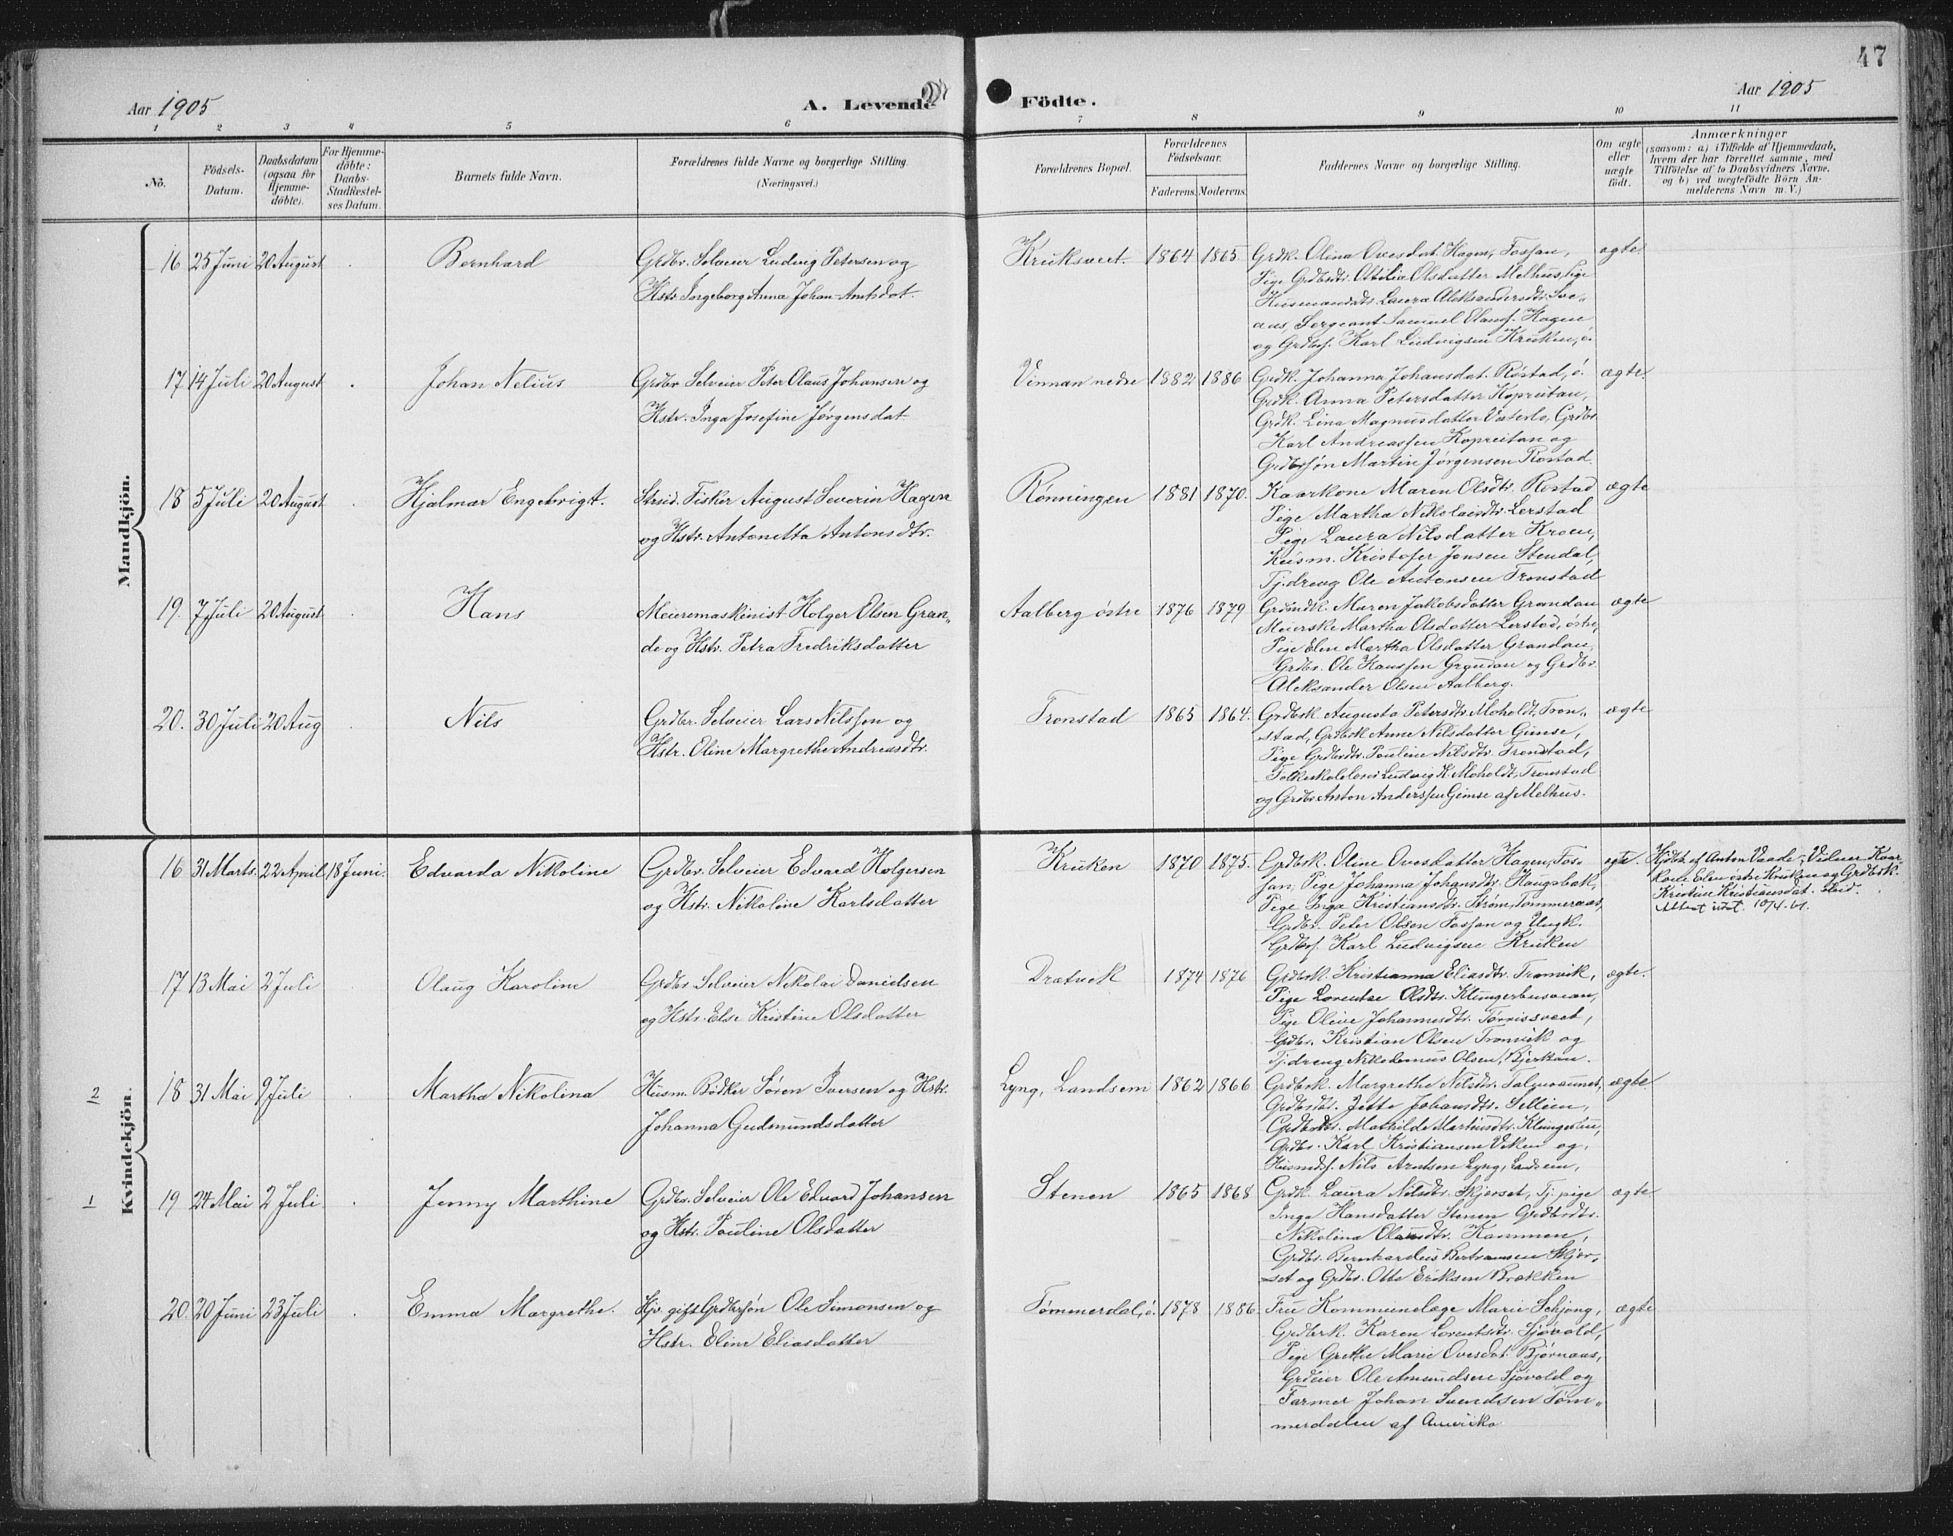 47
Aar 1905
A. Levende
Födte.
Aar 1905
1 2 3 4 5 6 7 8 9 10 11
No.
Födsels-Datum.
Daabsdatum (ogsaa for Hjemme-döbte).
For Hjemme-döbte: Daabs-Stadfæstel-ses Datum.
Barnets fulde Navn.
Forældrenes fulde Navne og borgerlige Stilling.
(Næringsvei.)
Forældrenes Bopæl.
Forældrenes Födselsaar.
Faderens. Moderens.
Faddernes Navne og borgerlige Stilling.
Om ægte eller uægte födt.
Anmærkninger
(saasom: a) i Tilfælde af Hjemmedaab, hvem der har forrettet samme, med Tilföielse af to Daabsvidners Navne, og b) ved uægtefödte Börn An-melderens Navn m. V.)
Mandkjön.
16 25 Juni 20 August Bernhard
Grdbr. Selveier Ludvig Petersen og
Hstr. Ingeborg Anna Johan-Antsdat.
Kruksveet. 1864 1865
Grdk. Olina Ovesdat. Hagen, Fossan,
Pige Grdbrdtr. Otilia Olsdatter Melhus, Pige
Husmandsdtr. Laura Aleksandersdtr. Sve-
aas, Sergeant Samuel Hagen
og Grdbrs. Karl Ludvigsen Kruken, ö.
ægte.
17 14 Juli 20 August Johan Nelius
Grdbr. Selveier Peter Olaus Johansen og
Hstr. Inga Josefine Jørgensdat
Vinnan nedre 1882 1886
Grdk. Johanna Johansdat. Røstad, ö.
Grdk. Anna Petersdatter Kopreitan,
Grdk. Lina Magnusdatter Vesterlo, Grdbr.
Karl Andreassen Kopreitan og
Grdbrsøn Martin Jørgensen Rostad.
ægte.
18 5 Juli 20 August Hjalmar Engebrigt.
Strsid. Fisker August Severin Hagen
og Hstr. Antonetta Antonsdtr.
Rønningen 1881 1870.
Kaarkone Maren Olsdtr. Rostad
Pige Martha Nikolaisdtr. Lerstad
Pige Laura Nilsdatter Kroen,
Husm. Kristofer Jensen Stendal,
Tj.dreng Ole Antonsen Tronstad
ægte
19. 7 Juli 20 August Hans
Meiermaskinist Holger Olsen Gran-
de og Hstr. Petra Fredriksdatter
Aalberg østre 1876 1879
Grdmdk. Maren Jakobsdatter Grandan
Meierske Martha Olsdatter Lerstad, østre,
Pige Elen Martha Olsdatter Grandan,
Grdbr. Ole Hanssen Grandan og Grdbr.
Aleksander Olsen Aalberg.
ægte
20. 30 Juli 20 Aug Nils
Grdbr. Selveier Lars Nilssen og
Hstr. Oline Margrethe Andreasdtr.
Tronstad 1865 1864.
Grdbrk. Augusta Petersdtr. Moholdt, Tron-
stad, Grdbrk. Anne Nilsdatter Gimse,
Pige Grdbrdtr. Pauline Nilsdtr. Tronstad,
Folkeskolelærer Ludvig K. Moholdt, Tronstad
og Grdbr. Anton Anderssen Gimse af Melhus.
ægte
Kvindekjön.
16 31 Marts. 22 April 18 Juni. Edvarda Nikoline
Grdbr. Selveier Edvard Holgersen
og Hstr. Nikoline Karlsdatter
Kruken 1870 1875.
Grdbrk. Oline Ovesdatter Hagen, Fos-
san, Pige Johanna Johansdtr. Haugsbak,
Pige Inga Kristiansdtr. Strøm, Tommeraas,
Grdbr. Peter Olsen Fossan og Ungk.
Grdbrs. Karl Ludvigsen Kruken
ægte.
Hjdøbt af Anton Vaade; Vidner Kaar-
kone Elen østre Kruken og Grdbrk.
Kristine Kristiansdat. ibid.
Attest udst. 10/4.61.
17 13 Mai 2 Juli Olaug Karoline
Grdbr. Selveier Nikolai Danielsen
og Hstr. Else Kristine Olsdatter
Drætvek 1874 1876
Grdbrk. Kristianna Eliasdtr. Tronvik,
Pige Lorentse Olsdtr. Klungerbusveian,
Pige Oline Johannesdtr. Tørrissveet,
Grdbr. Kristian Olsen Tronvik og
Tj.dreng Nikodemus Olsen, Bjerkan.
ægte.
2
18 31 Mai 9 Juli Martha Nikolina
Husm. Bødker Søren Iversen og Hstr.
Johanna Gudmundsdatter
Lyng, Landsem 1862 1866
Grdbrk. Margrethe Nilsdtr.
Grdbrdtr. Jette Johansdtr.
Grdbrdtr. Mathilde
Grdbr. Karl Kristiansen Viken og
Husmds. Nils Arntsen Lyng,
ægte
1
19 24 Mai 2 Juli Jenny Marthine
Grdbr. Selveier Ole Edvard Johansen
og Hstr. Pauline Olsdatter
Stenen 1865 1868
Grdk. Laura Nilsdtr. Skjerset, Tj. pige
Inga Hansdatter Stenen Grdbrdtr.
Nikolina Olausdtr. Kammen,
Grdbr. Bernhardus Bertramsen Skjer-
set og Grdbr. Otto Eriksen Brækken
ægte
20. 20 Juni 23 Juli Emma Margrethe.
Hjv. gift Grdbrsøn Ole Simonsen og
Hstr. Oline Eliasdatter
Tømmerdal, ö. 1878 1886
Fru Kommunelæge Marie Schjong,
Grdbrk. Karen Lorentsdtr. Sjøvold,
Pige Grethe Marie Ovesdat Bjørnaas,
Grdeier Ole Amundsen Sjøvold og
Farmer Johan Svendsen Tøm-
merdalen af Amerika
ægte